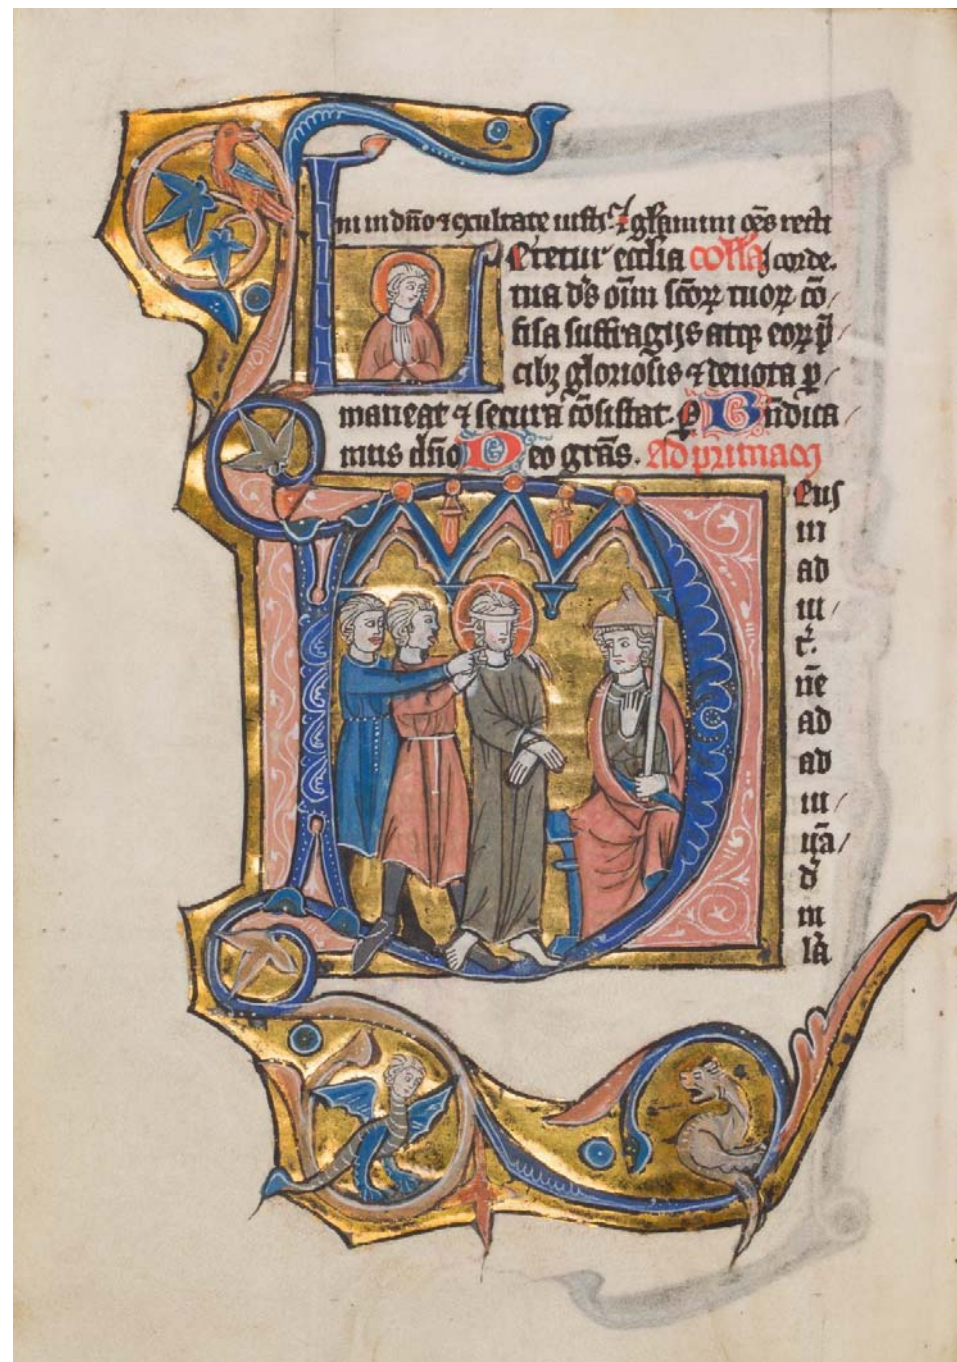 ini in dño ⁊ exultate iusti ⁊ gl̃amini oẽs recti
Letetur ecc̃lia coll̃a corde.
tua ds̃ oĩm sc̃oꝝ tuoꝝ cõ/
fisa suffragijs atqꝫ eoꝝ p̃/
cibꝫ gloriosis ⁊ deuota ꝑ/
maneat ⁊ secura cõsistat. Bñdica/
mus dño Deo gr̃as. Ad primam
Deus
in
ad
iu/
t̃.
ñe
ad
ad
iu/
uã/
d̃
m
la̾